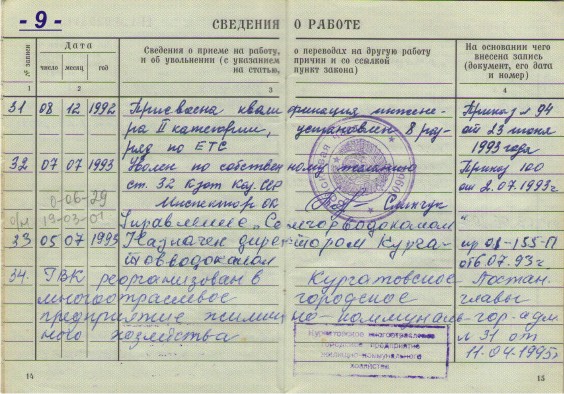 - 9 -
СВЕДЕНИЯ О РАБОТЕ
№ записи
Дата
число месяц год
Сведения о приеме на работу, о переводах на другую работу
и об увольнении (с указанием причин и со ссылкой
на статью, пункт закона)
На основании чего
внесена запись
(документ, его дата
и номер)
1 2 3 4
31 08 12 1992 Присвоена квалификация инжене- Приказ № 94
ра II категории, установлен 8 раз- от 23 июня
ряд по ЕТС 1993 года
32 07 07 1993 Уволен по собственному желанию Приказ 100
ст. 32 Кзот Каз.ССР от 2.07.1993г
Инспектор ОК
0-06-29
19-03-01
Управление
33 05 07 1993 Назначен директором Курча- пр 08-155-П
товводоканал от 6.07.93г.
34. ГВК реорганизован в Курчатовское Постан.
многоотраслевое городское главы
предприятие жилищно-коммуналь- гор.адм.
ного хозяйства № 31 от
11-04-1995г
Курчатовское многоотраслевое
городское предприятие
жилищно-коммунального
хозяйства
14 15